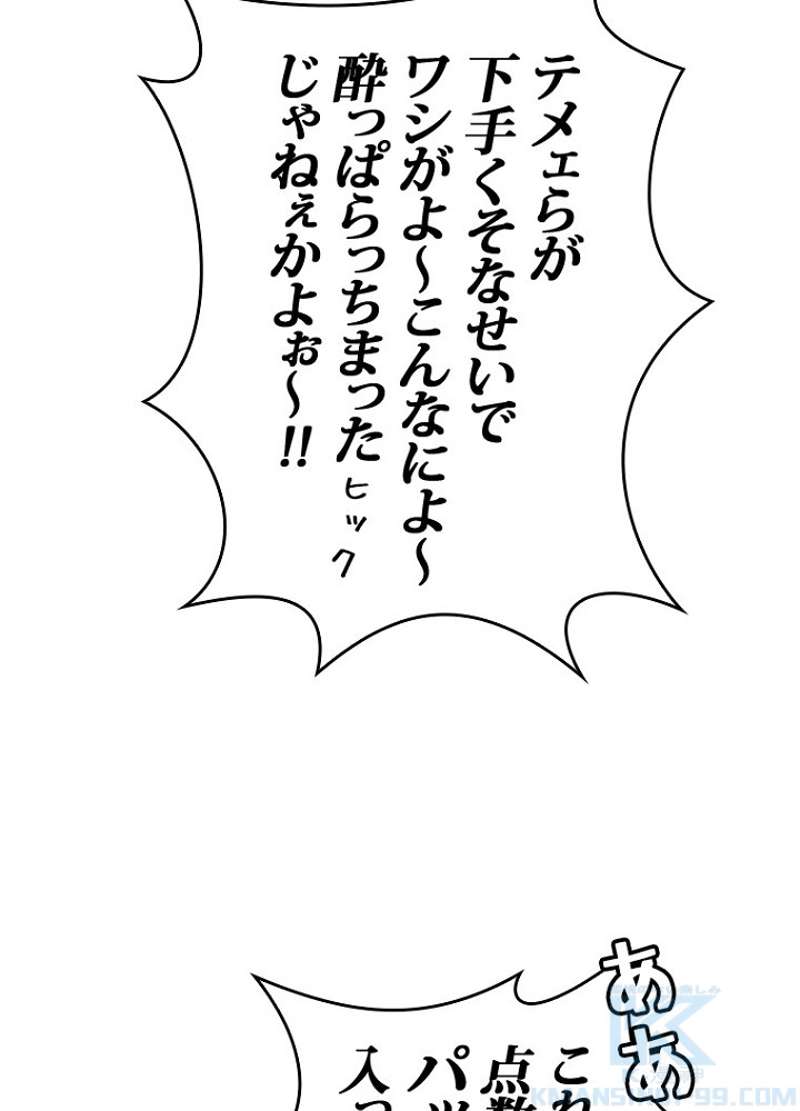 テメェらが
下手くそなせいで
ワシがよ～こんなによ～
酔っぱらっちまった
ヒック
じゃねぇかよぉ～!!
ああ
点数
パッ
入っ
KMANSHUP99.COM